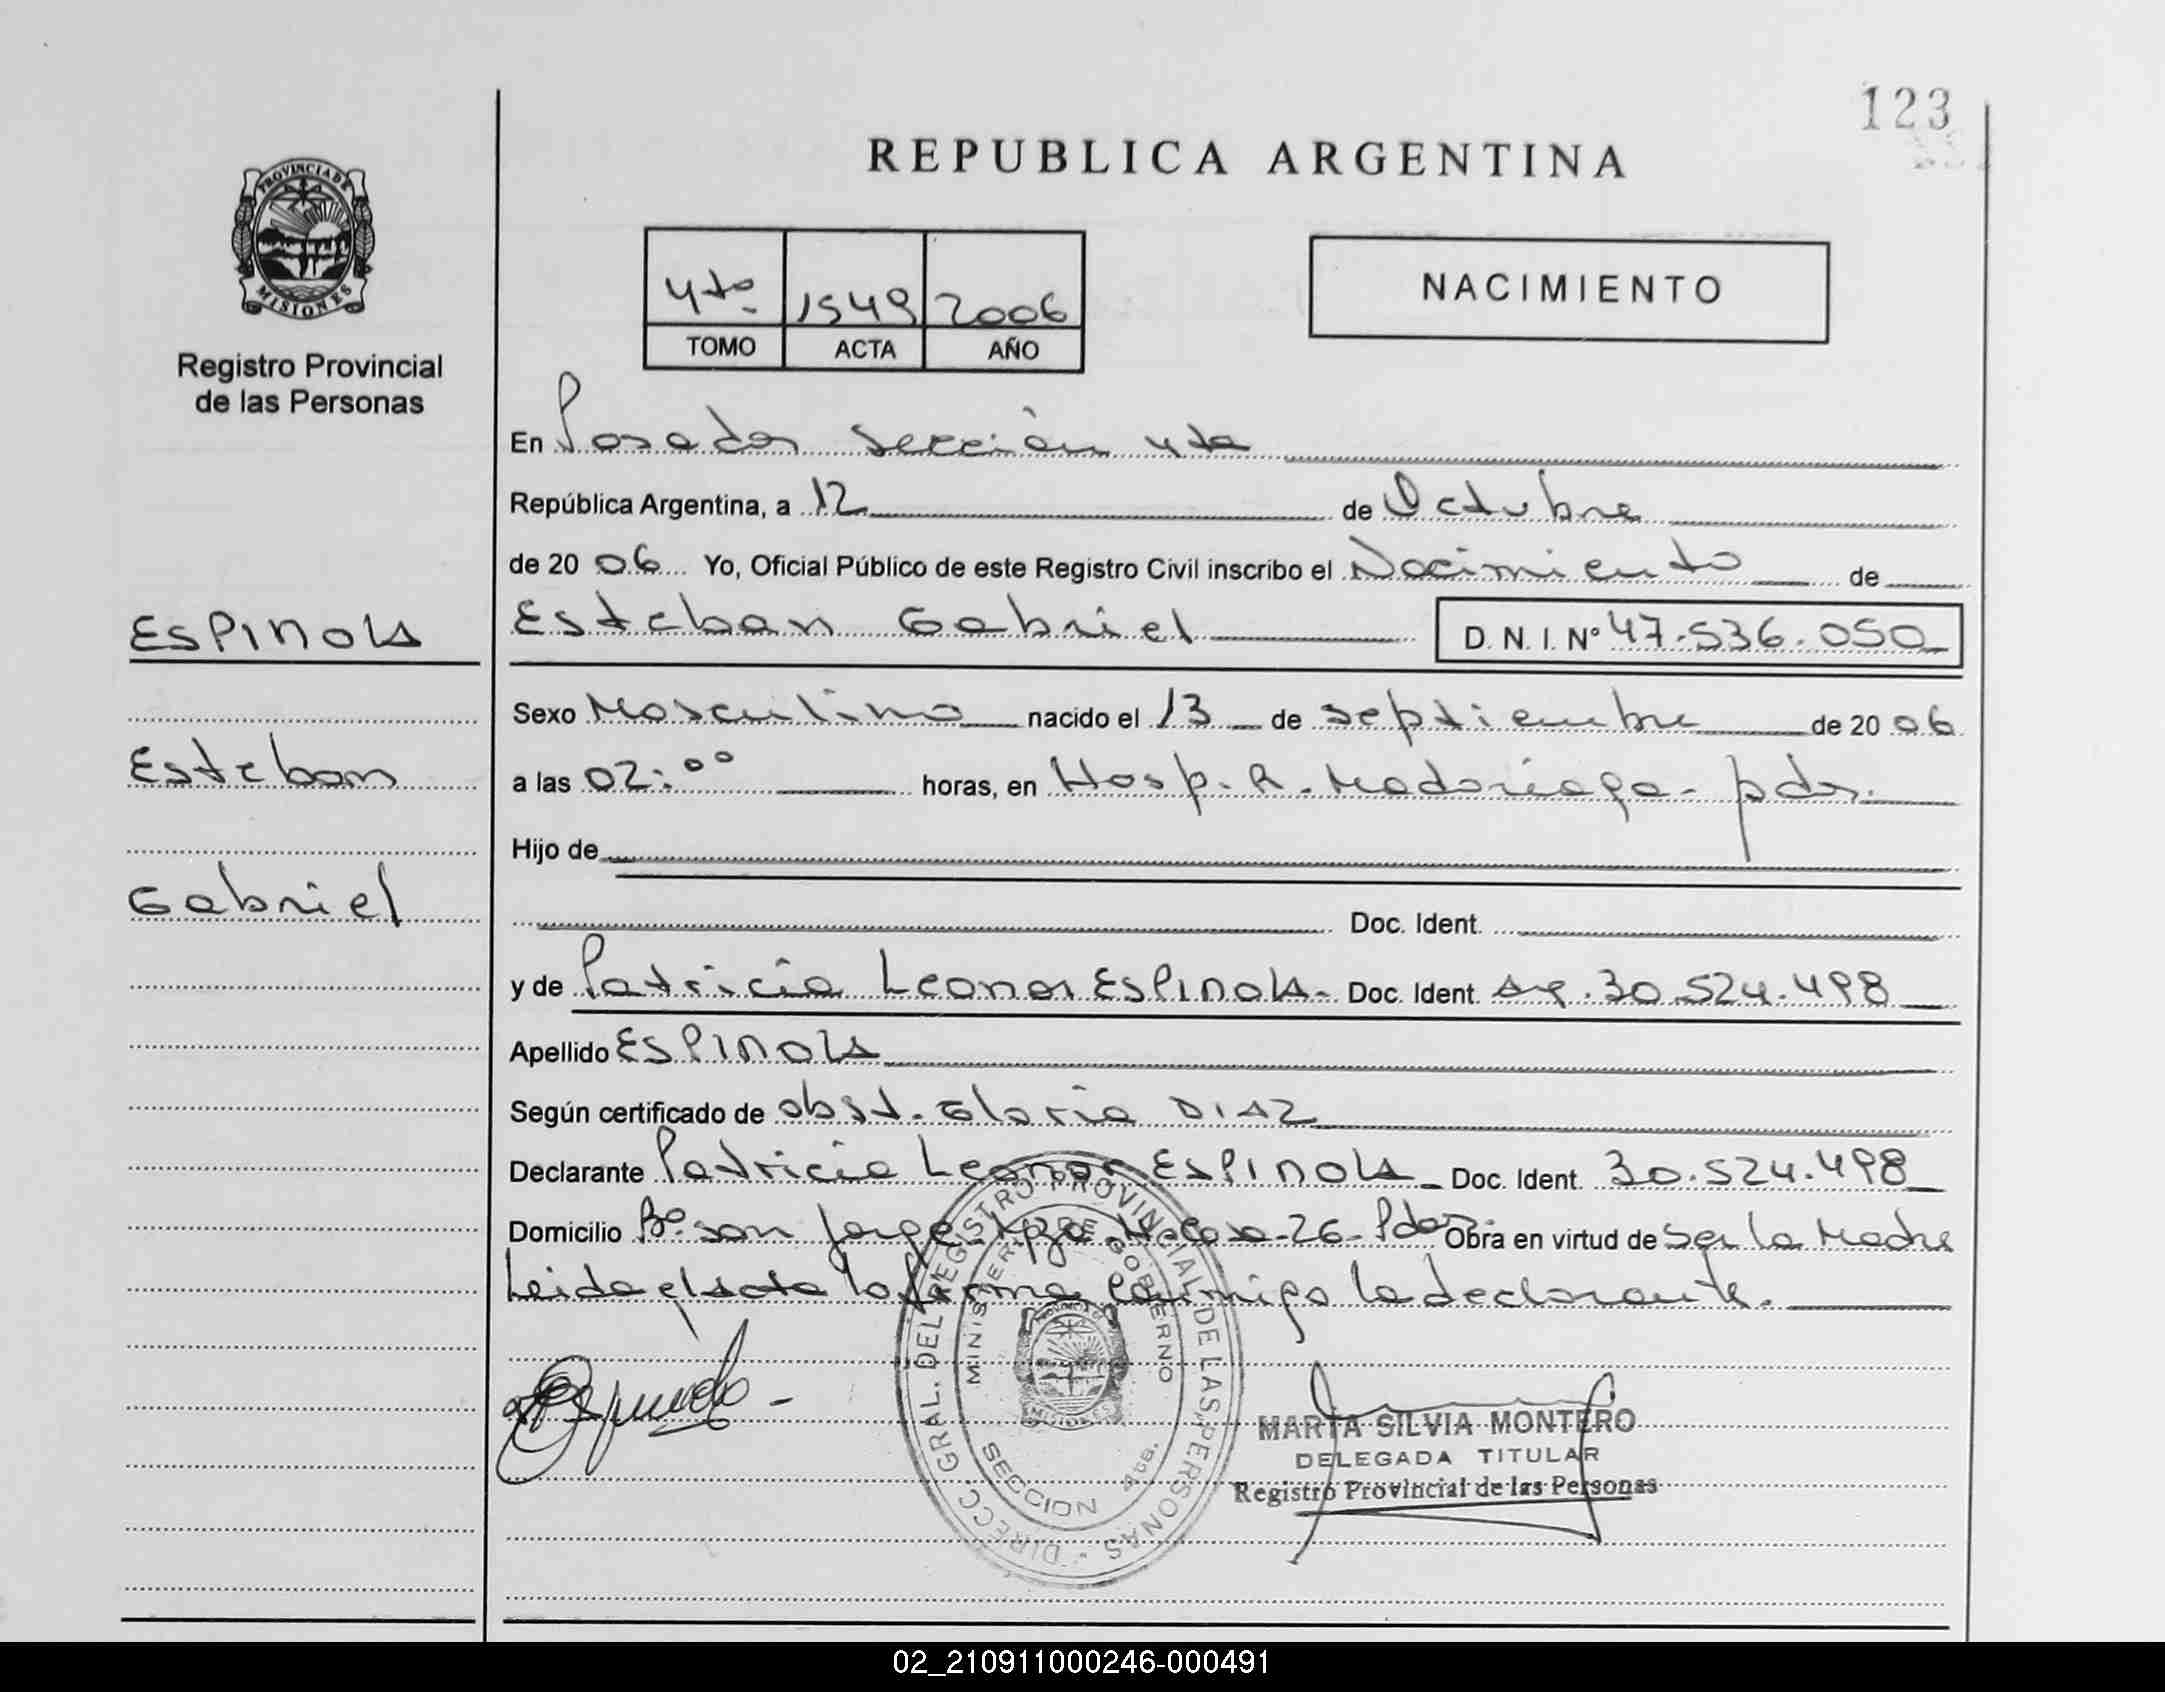 123
REPUBLICA ARGENTINA
PROVINCIA DE
MISIONES
Registro Provincial
de las Personas
4to 1549 2006
TOMO ACTA AÑO
NACIMIENTO
En Posadas Sección 4ta
República Argentina, a 12 de Octubre
de 20 06 Yo, Oficial Público de este Registro Civil inscribo el Nacimiento de
ESPINOLA
Esteban Gabriel D. N. I. Nº 47.536.050
Sexo Masculino nacido el 13 de septiembre de 20 06
Esteban
a las 02:00 horas, en Hosp. R. Madariaga - pdas.
Hijo de
Gabriel
Doc. Ident.
y de Patricia Leonor ESPINOLA - Doc. Ident. 30.524.498
Apellido ESPINOLA
Según certificado de obst. Gloria DIAZ
Declarante Patricia Leonor ESPINOLA Doc. Ident. 30.524.498
Domicilio Bº san Jorge casa-26-Pdas. Obra en virtud de Ser la Madre
Leida el acta la firma conmigo la declarante.
DIRECC. GRAL. DEL REGISTRO PROVINCIAL DE LAS PERSONAS
MINISTERIO DE GOBIERNO
PROVINCIA DE
MISIONES
SECCION 4ta.
MARTA SILVIA MONTERO
DELEGADA TITULAR
Registro Provincial de las Personas
02_210911000246-000491